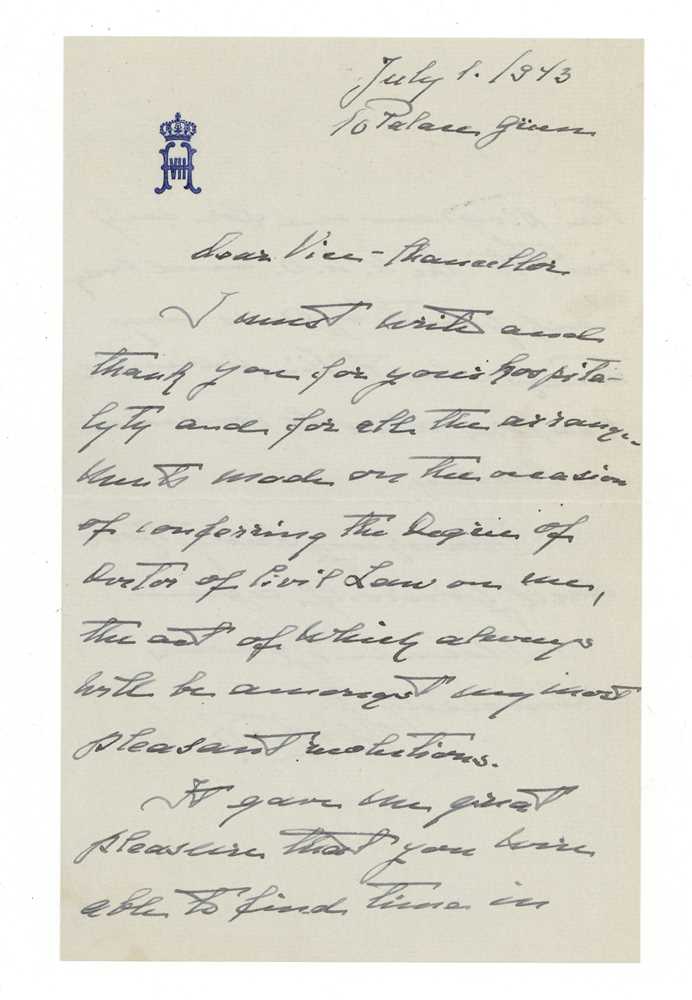 July 1. 1943
10 Palace Green
H VII
Dear Vice-Chancellor
I must write and
thank you for your hospita-
lyty and for all the arrange-
ments made on the occasion
of conferring the Degree of
Doctor of Civil Law on me,
the act of which always
will be amongst my most
pleasant recolections.
It gave me great
pleasure that you were
able to find time in